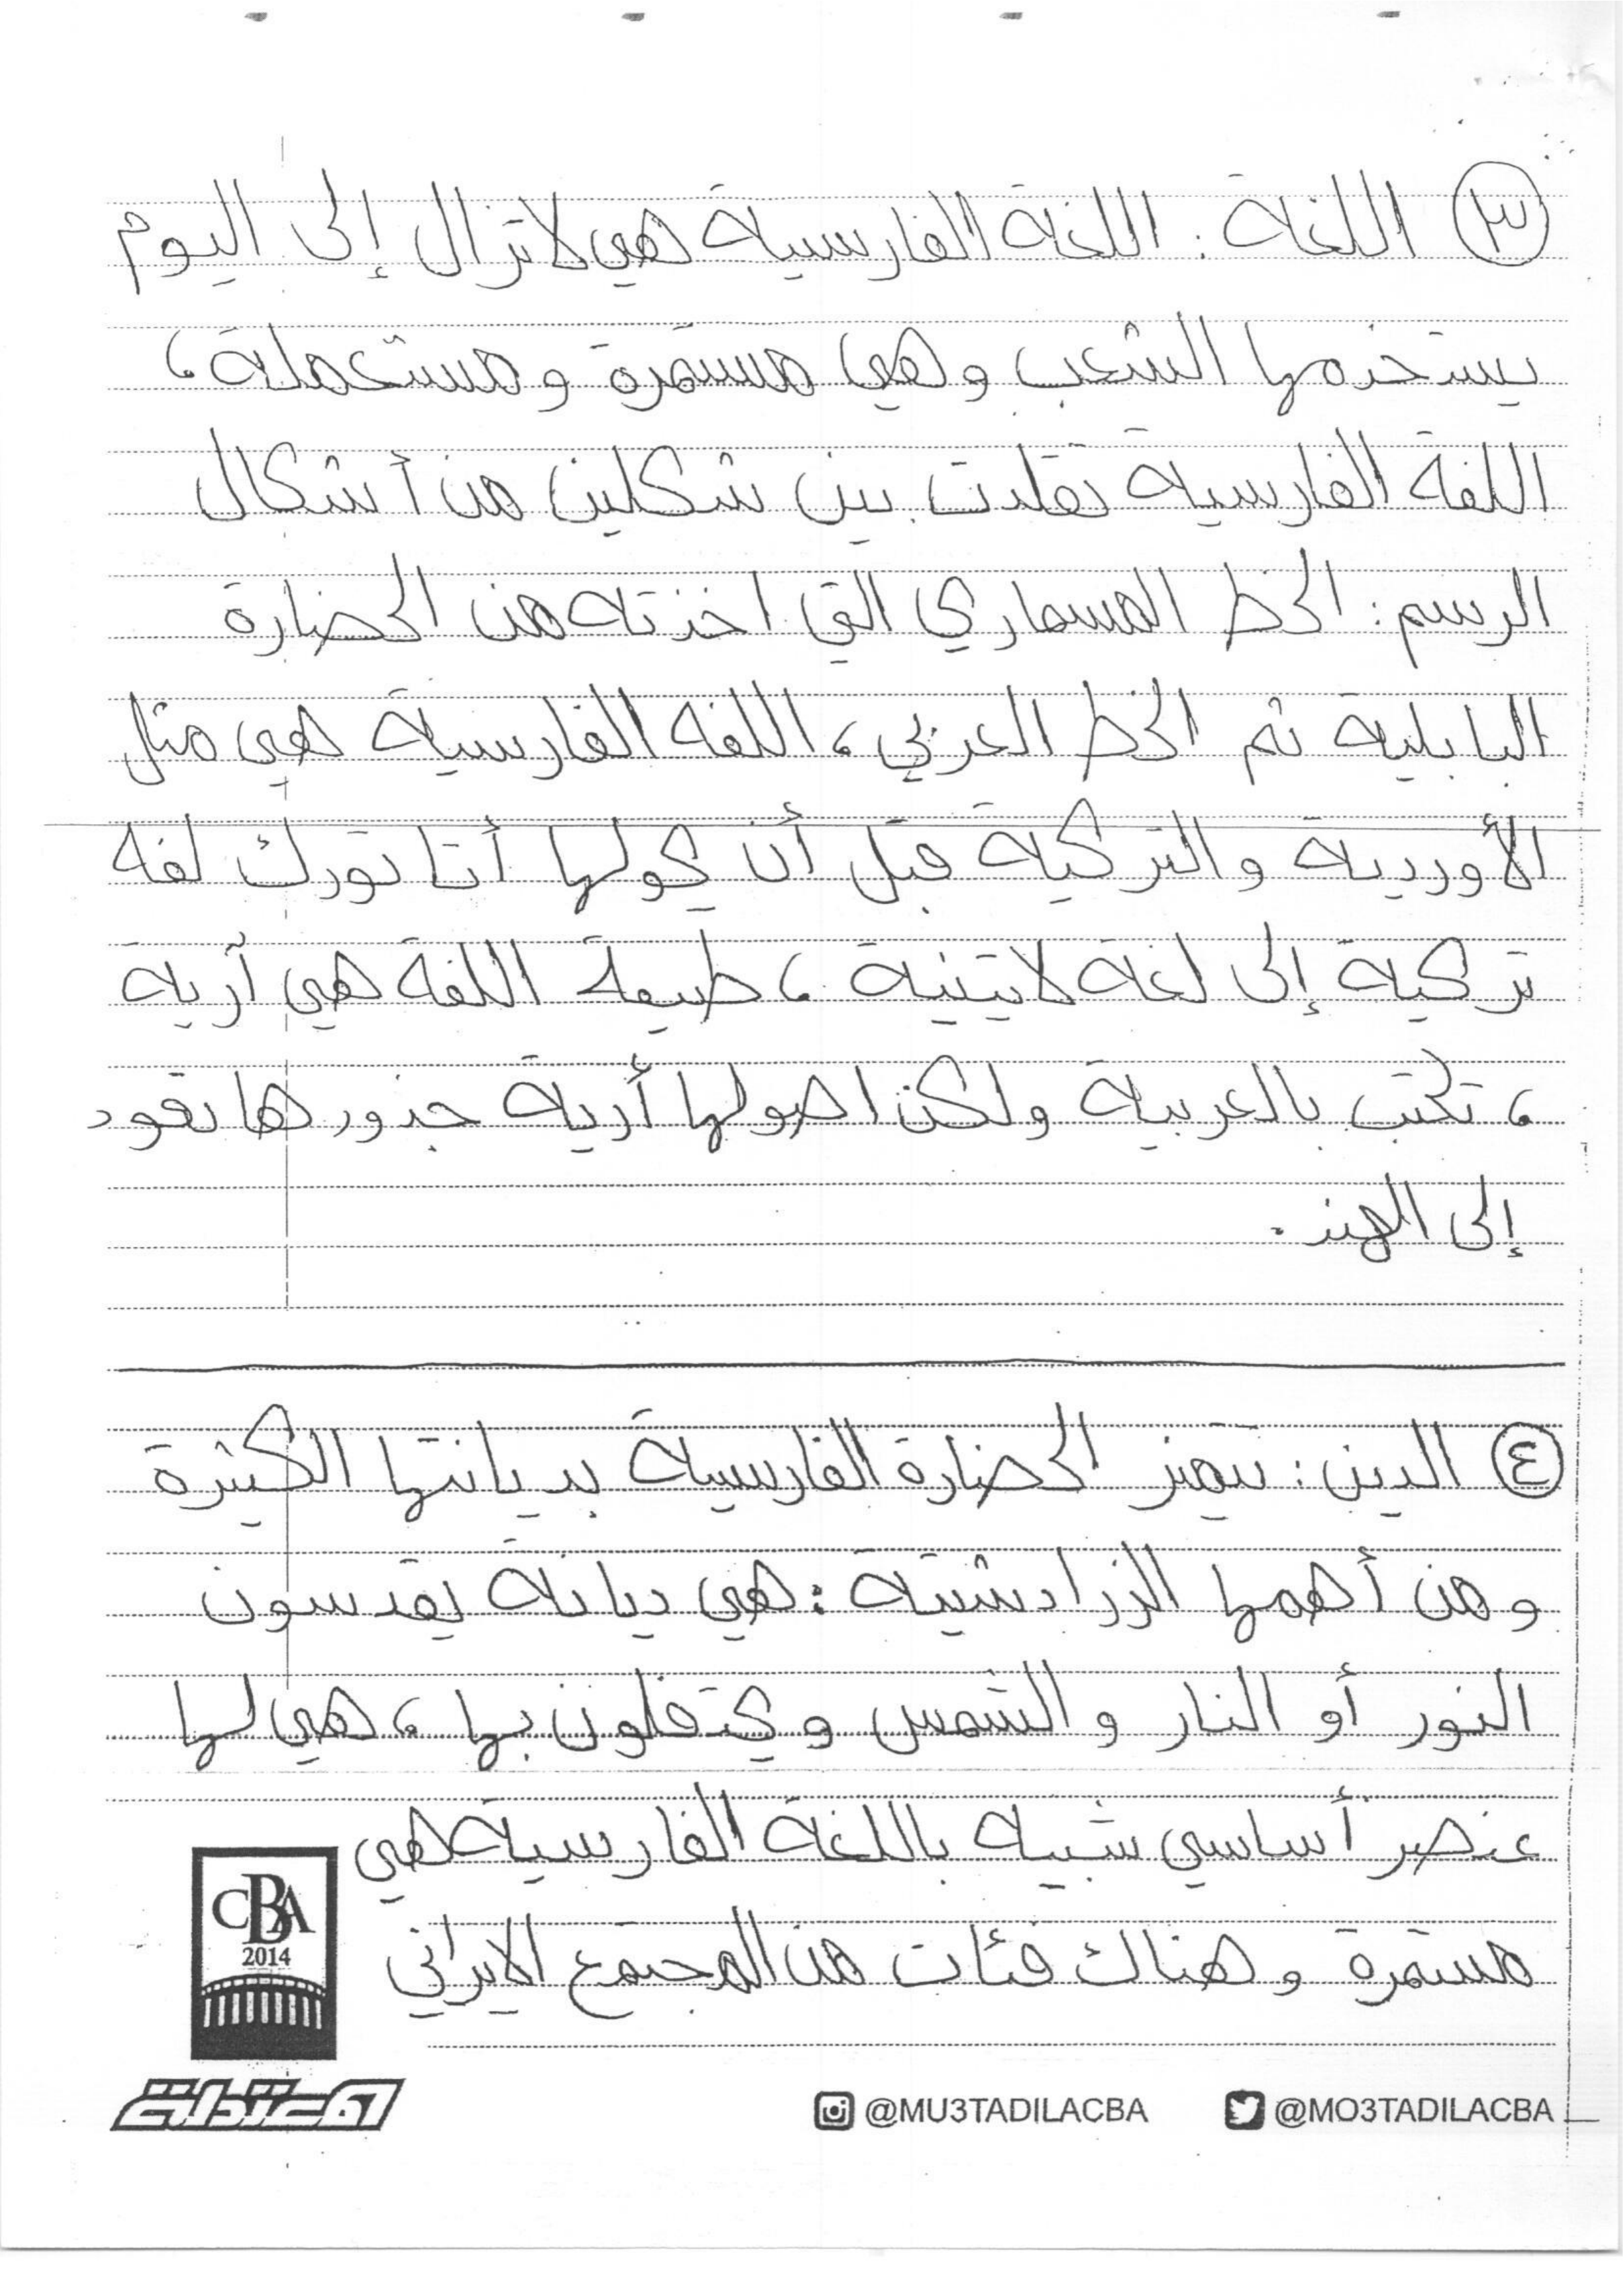 ٣ اللغة : اللغة الفارسية هي لا تزال إلى اليوم
يستخدمها الشعب وهي مستمرة ومستعملة ،
اللغة الفارسية نقلت بين شكلين من أشكال
الرسم : الخط المسماري التي اخذته من الحضارة
البابلية ثم الخط العربي ، اللغة الفارسية هي مثل
الأوردية والتركية قبل أن يحولها أتاتورك لغة
تركية إلى لغة لاتينية ، طبيعة اللغة هي آرية
، تكتب بالعربية ولكن اصولها أرية جذورها تعود
إلى الهند .
٤ الدين : تتميز الحضارة الفارسية بديانتها الكثيرة
ومن أهمها الزرادشتية : هي ديانة يقدسون
النور أو النار والشمس ويحتفلون بها ، هي لها
عنصر أساسي شبيه باللغة الفارسية هي
مستمرة وهناك فئات من المجتمع الايراني
CBA
2014
المعتدلة
@MU3TADILACBA @MO3TADILACBA